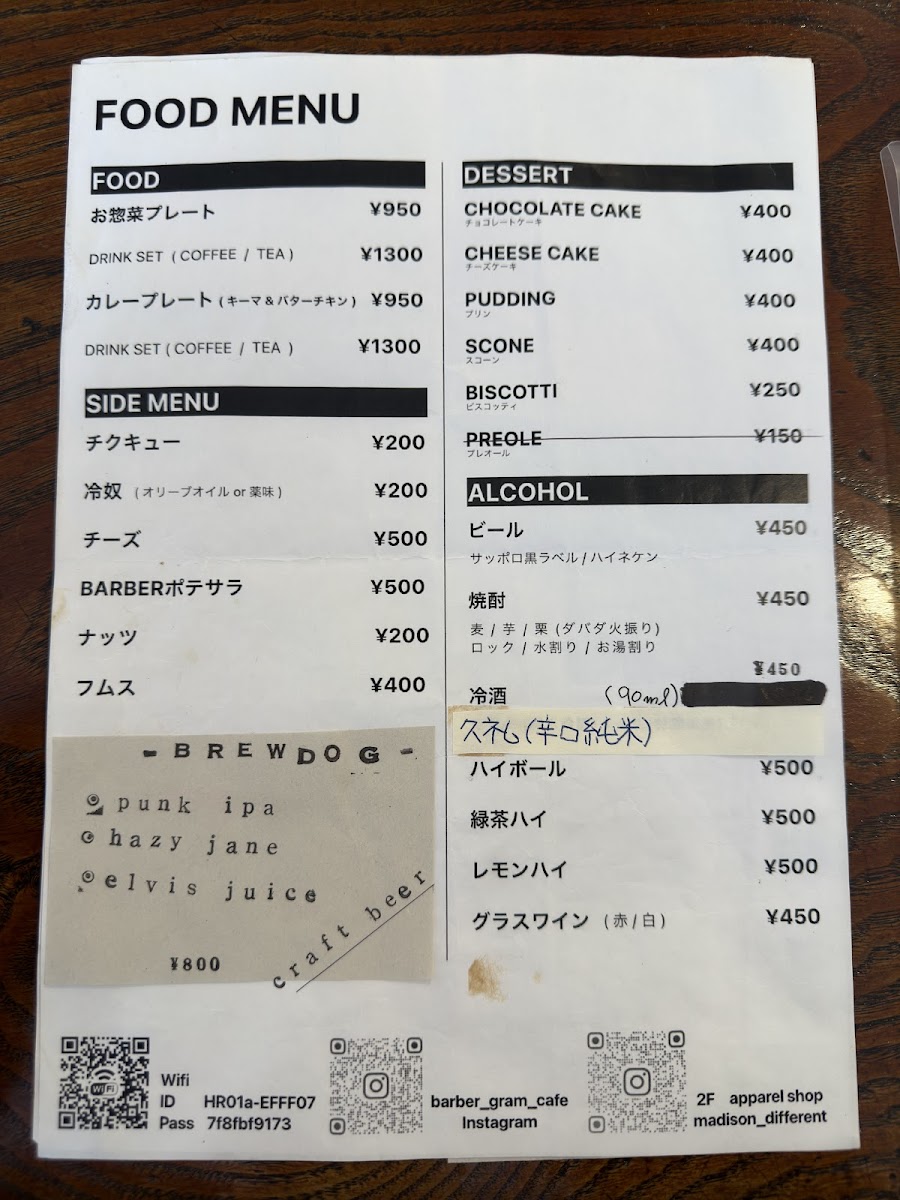 FOOD MENU
FOOD
お惣菜プレート ¥950
DRINK SET ( COFFEE / TEA ) ¥1300
カレープレート ( キーマ & バターチキン ) ¥950
DRINK SET ( COFFEE / TEA ) ¥1300
SIDE MENU
チクキュー ¥200
冷奴 ( オリーブオイル or 薬味 ) ¥200
チーズ ¥500
BARBERポテサラ ¥500
ナッツ ¥200
フムス ¥400
- BREWDOG -
punk ipa
hazy jane
elvis juice
craft beer
¥800
DESSERT
CHOCOLATE CAKE ¥400
チョコレートケーキ
CHEESE CAKE ¥400
チーズケーキ
PUDDING ¥400
プリン
SCONE ¥400
スコーン
BISCOTTI ¥250
ビスコッティ
PREOLE ¥150
プレオール
ALCOHOL
ビール ¥450
サッポロ黒ラベル / ハイネケン
焼酎 ¥450
麦 / 芋 / 栗 (ダバダ火振り)
ロック / 水割り / お湯割り
¥450
冷酒 (90ml)
(辛口純米)
ハイボール ¥500
緑茶ハイ ¥500
レモンハイ ¥500
グラスワイン ( 赤 / 白 ) ¥450
WiFi
Wifi
ID HR01a-EFFF07
Pass 7f8fbf9173
barber_gram_cafe
Instagram
2F apparel shop
madison_different